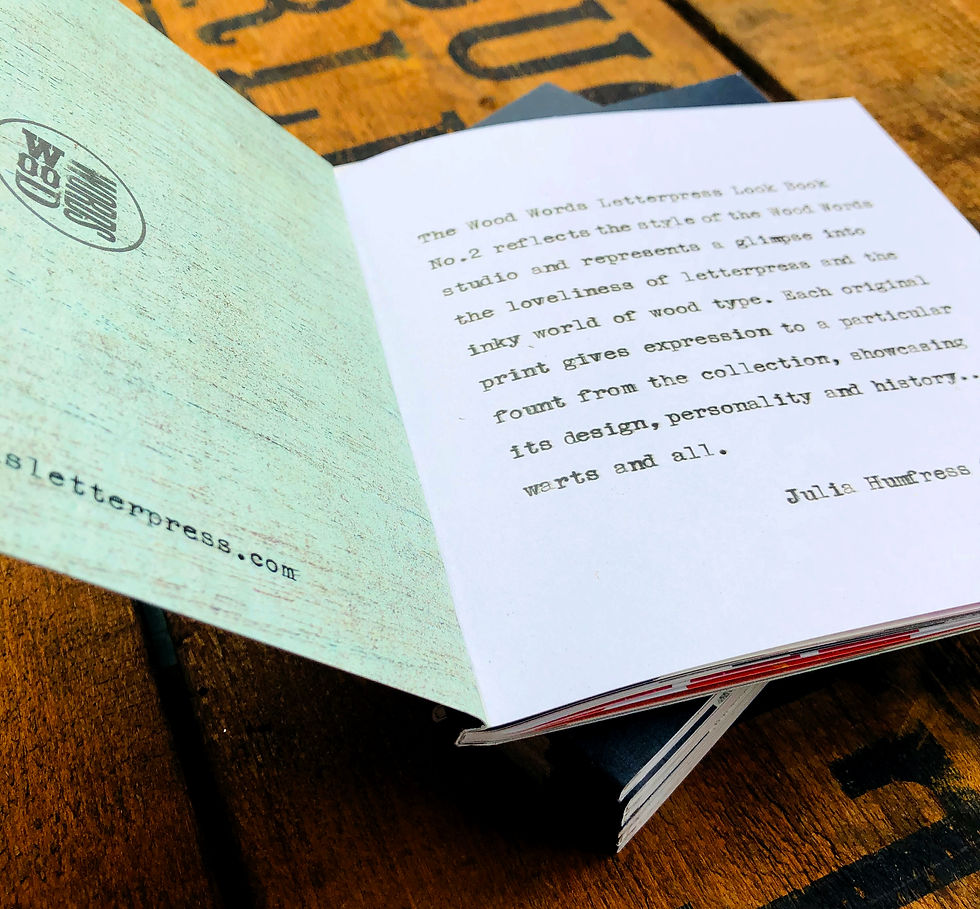 WOOD
WORDS
sletterpress.com
The Wood Words Letterpress Look Book
No.2 reflects the style of the Wood Words
studio and represents a glimpse into
the loveliness of letterpress and the
inky world of wood type. Each original
print gives expression to a particular
fount from the collection, showcasing
its design, personality and history..
warts and all.
Julia Humfress